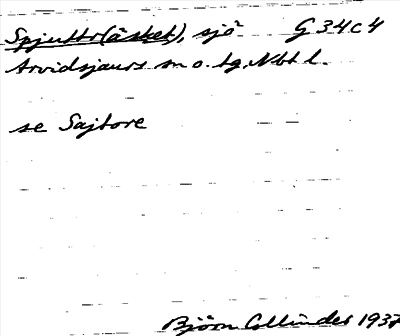 Spjuttr(äsket), sjö G 34 c 4
Arvidsjaurs sn o. tg, Nbt l.
se Sajtore
Björn Collinder 1937